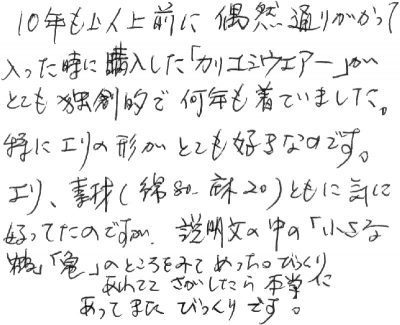 10年も以上前に偶然通りがかって
入った時に購入した「カリユシウエアー」が
とても独創的で何年も着ていました。
特にエリの形がとても好きなのです。
エリ、素材(綿80-麻20)ともに気に
入ってたのですが、説明文の中の「小さな
「亀」のところをみてめっちゃびっくり
あわてて さがしたら 本当に
あってまた びっくりです。